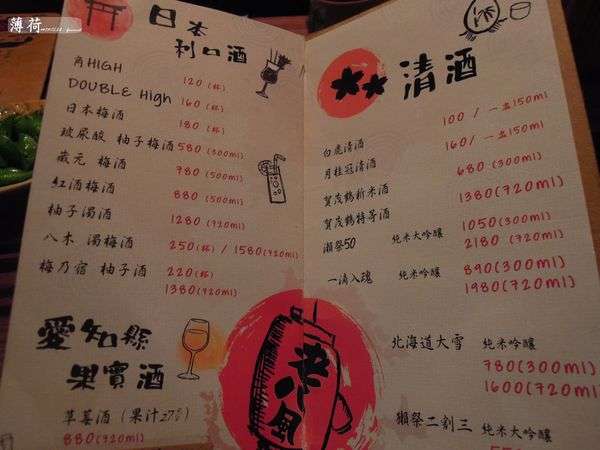 薄荷
日本
利口酒
角HIGH 120(杯)
DOUBLE High 160(杯)
日本梅酒 180(杯)
玻尿酸 柚子梅酒 580(300ml)
蔵元 梅酒 780(500ml)
紅酒梅酒 880(500ml)
柚子濁酒 1280(720ml)
八木 濁梅酒 250(杯)/1580(720ml)
梅乃宿 柚子酒 220(杯)
1380(720ml)
愛知縣
果實酒
草莓酒(果汁27%)
880(720ml)
清酒
白鹿清酒 100/一盅150ml
月桂冠清酒 160/一盅150ml
賀茂鶴新米酒 680(300ml)
賀茂鶴特等酒 1380(720ml)
獺祭50 純米大吟釀 1050(300ml)
2180(720ml)
一滴入魂 純米吟釀 890(300ml)
1980(720ml)
北海道大雪 純米吟釀
780(300ml)
1600(720ml)
獺祭二割三 純米大吟釀